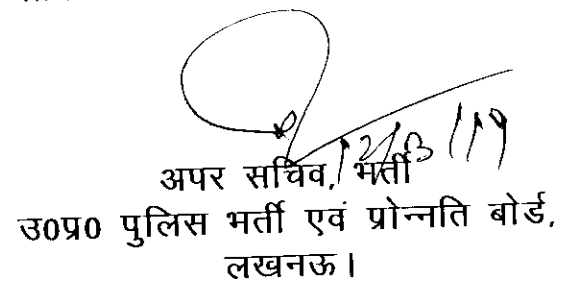 12/3/19
अपर सचिव, भर्ती
उ०प्र० पुलिस भर्ती एवं प्रोन्नति बोर्ड,
लखनऊ।